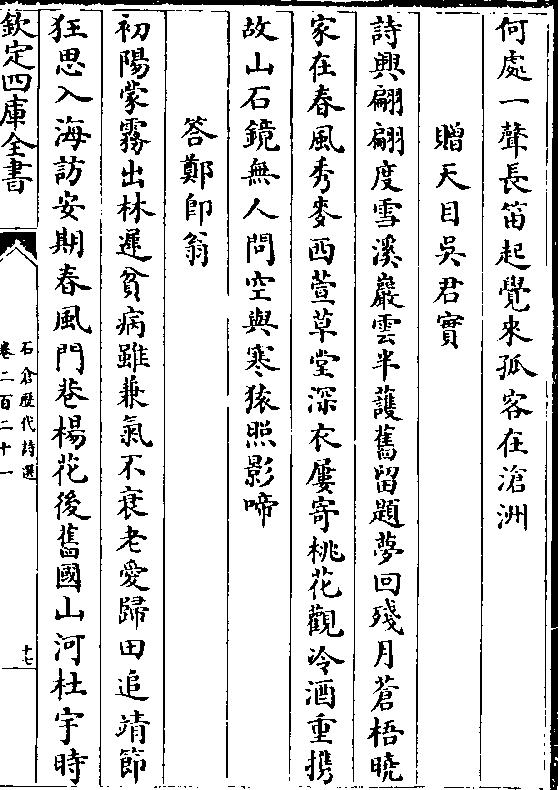 何處一聲長笛起覺來孤客在滄洲
贈天目吳君實
詩興翩翩度雪溪巖雲半護舊留題夢回殘月蒼梧曉
家在春風秀麥西萱草堂深衣屢寄桃花觀冷酒重携
故山石鏡無人問空與寒猿照影啼
答鄭即翁
初陽蒙霧出林遲貧病雖兼氣不衰老愛歸田追靖節
狂思入海訪安期春風門巷楊花後舊國山河杜宇時
欽定四庫全書
石倉歴代詩選
卷二百二十一
十七